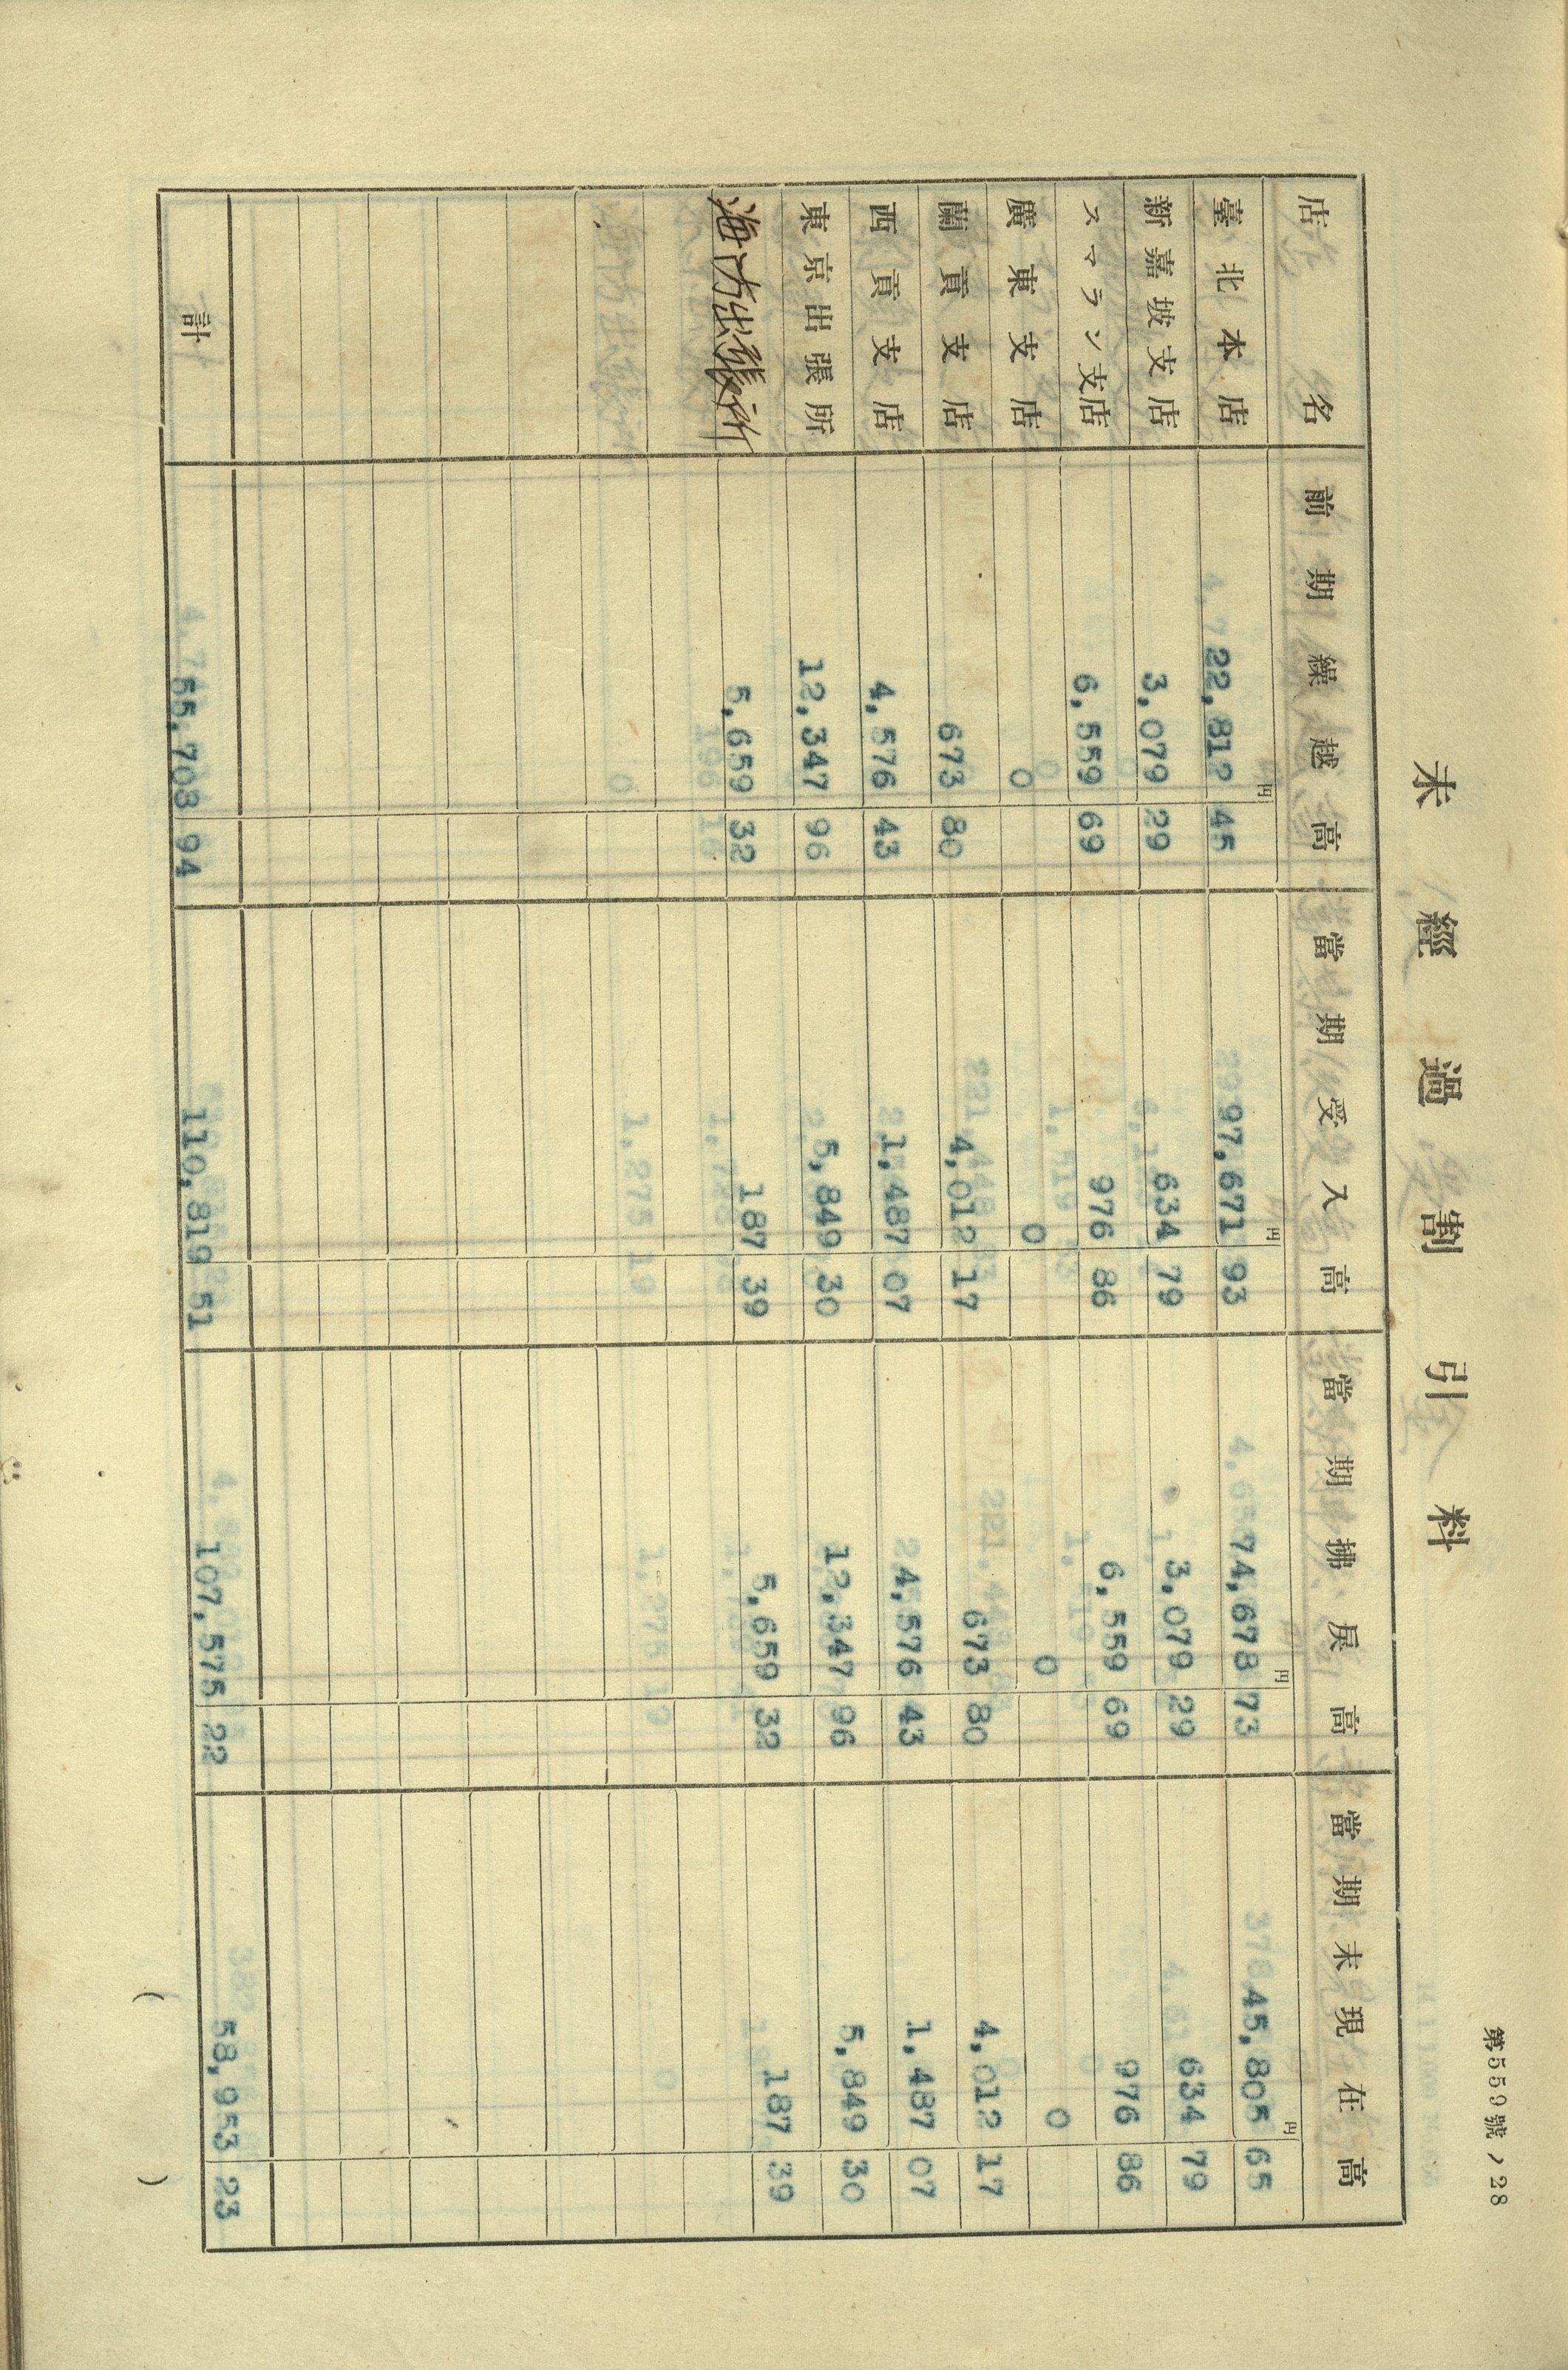 第559號ノ28
未經過割引料
店名 前期繰越高 當期受入高 當期拂戻高 當期末現在高
円 円 円 円
臺北本店 22,812 45 97,671 93 74,678 73 45,805 65
新嘉坡支店 3,079 29 634 79 3,079 29 634 79
スマラン支店 6,559 69 976 86 6,559 69 976 86
廣東支店 0 0 0 0
蘭貢支店 673 80 4,012 17 673 80 4,012 17
西貢支店 4,576 43 1,487 07 4,576 43 1,487 07
東京出張所 12,347 96 5,849 30 12,347 96 5,849 30
海防出張所 5,659 32 187 39 5,659 32 187 39
計 55,708 94 110,819 51 107,575 22 58,953 23
( )